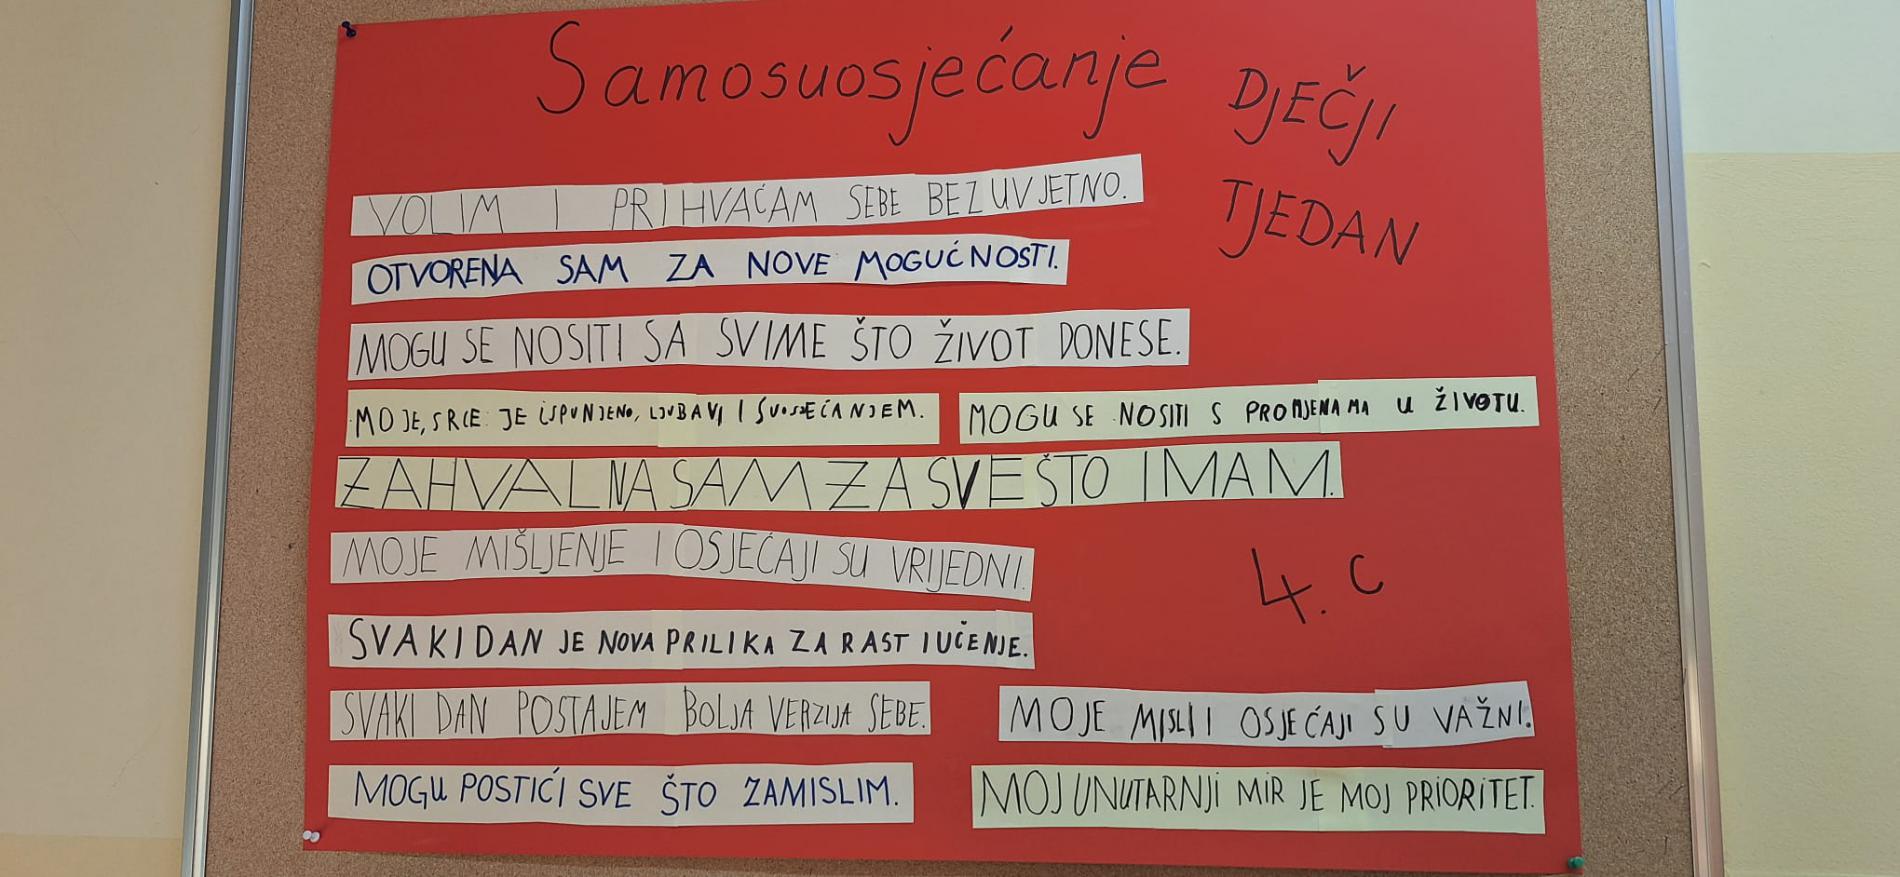 Samosuosjećanje
DJEČJI
TJEDAN
VOLIM I PRIHVAĆAM SEBE BEZUVJETNO.
OTVORENA SAM ZA NOVE MOGUĆNOSTI.
MOGU SE NOSITI SA SVIME ŠTO ŽIVOT DONESE.
MOJE, SRCE JE ISPUNJENO, LJUBAVI I SUOSJEĆANJEM.
MOGU SE NOSITI S PROMJENAMA U ŽIVOTU.
ZAHVALNA SAM ZA SVE ŠTO IMAM.
MOJE MIŠLJENJE I OSJEĆAJI SU VRIJEDNI.
4. C
SVAKI DAN JE NOVA PRILIKA ZA RAST I UČENJE.
SVAKI DAN POSTAJEM BOLJA VERZIJA SEBE.
MOJE MISLI I OSJEĆAJI SU VAŽNI.
MOGU POSTIĆI SVE ŠTO ZAMISLIM.
MOJ UNUTARNJI MIR JE MOJ PRIORITET.